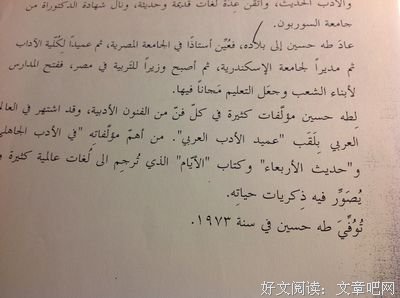 والأدب الحديث، وأتقن عدة لغات قديمة وحديثة، ونال شهادة الدكتوراة من
جامعة السوربون.
عادَ طه حسين إلى بلاده، فعُيِّن أستاذًا في الجامعة المصرية، ثم عميداً لِكُلّية الآداب
ثم مديراً لجامعة الإسكندرية، ثم أصبح وزيراً للتربية في مصر، ففتح المدارس
لأبناء الشعب وجعَل التعليم مَجاناً فيها.
لِطه حسين مؤلَّفات كثيرة في كلّ فنّ من الفنون الأدبية، وقد اشتهر في العالم
العربي بِلَقَب "عميد الأدب العربي". من أهمّ مؤلَّفاتِه "في الأدب الجاهلي
و"حديث الأربعاء" وكتاب "الأيّام" الذي تُرجِم الى لُغات عالمية كثيرة و
يُصَوِّر فيه ذِكريات حياتِه.
تُوُفِّيَ طه حسين في سنة ١٩٧٣.
好文阅读：文章吧网